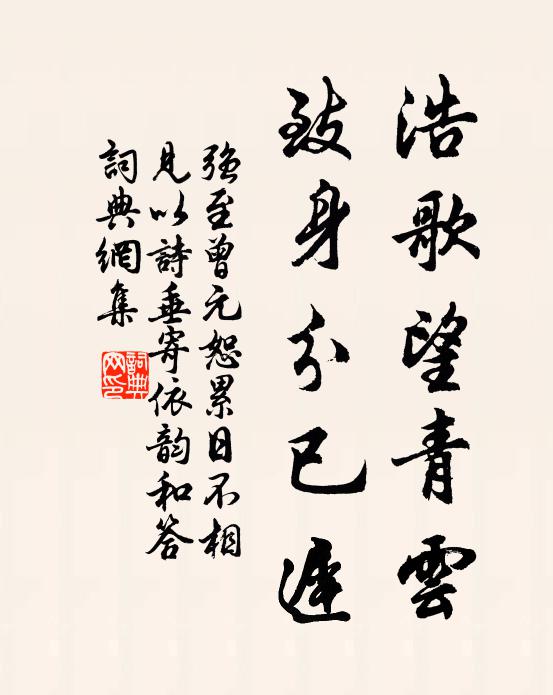 浩歌望青雲
致身分已遲
強至曾元恕累日不相
見以詩垂寄依韵和答
詞典網集
詞典網印